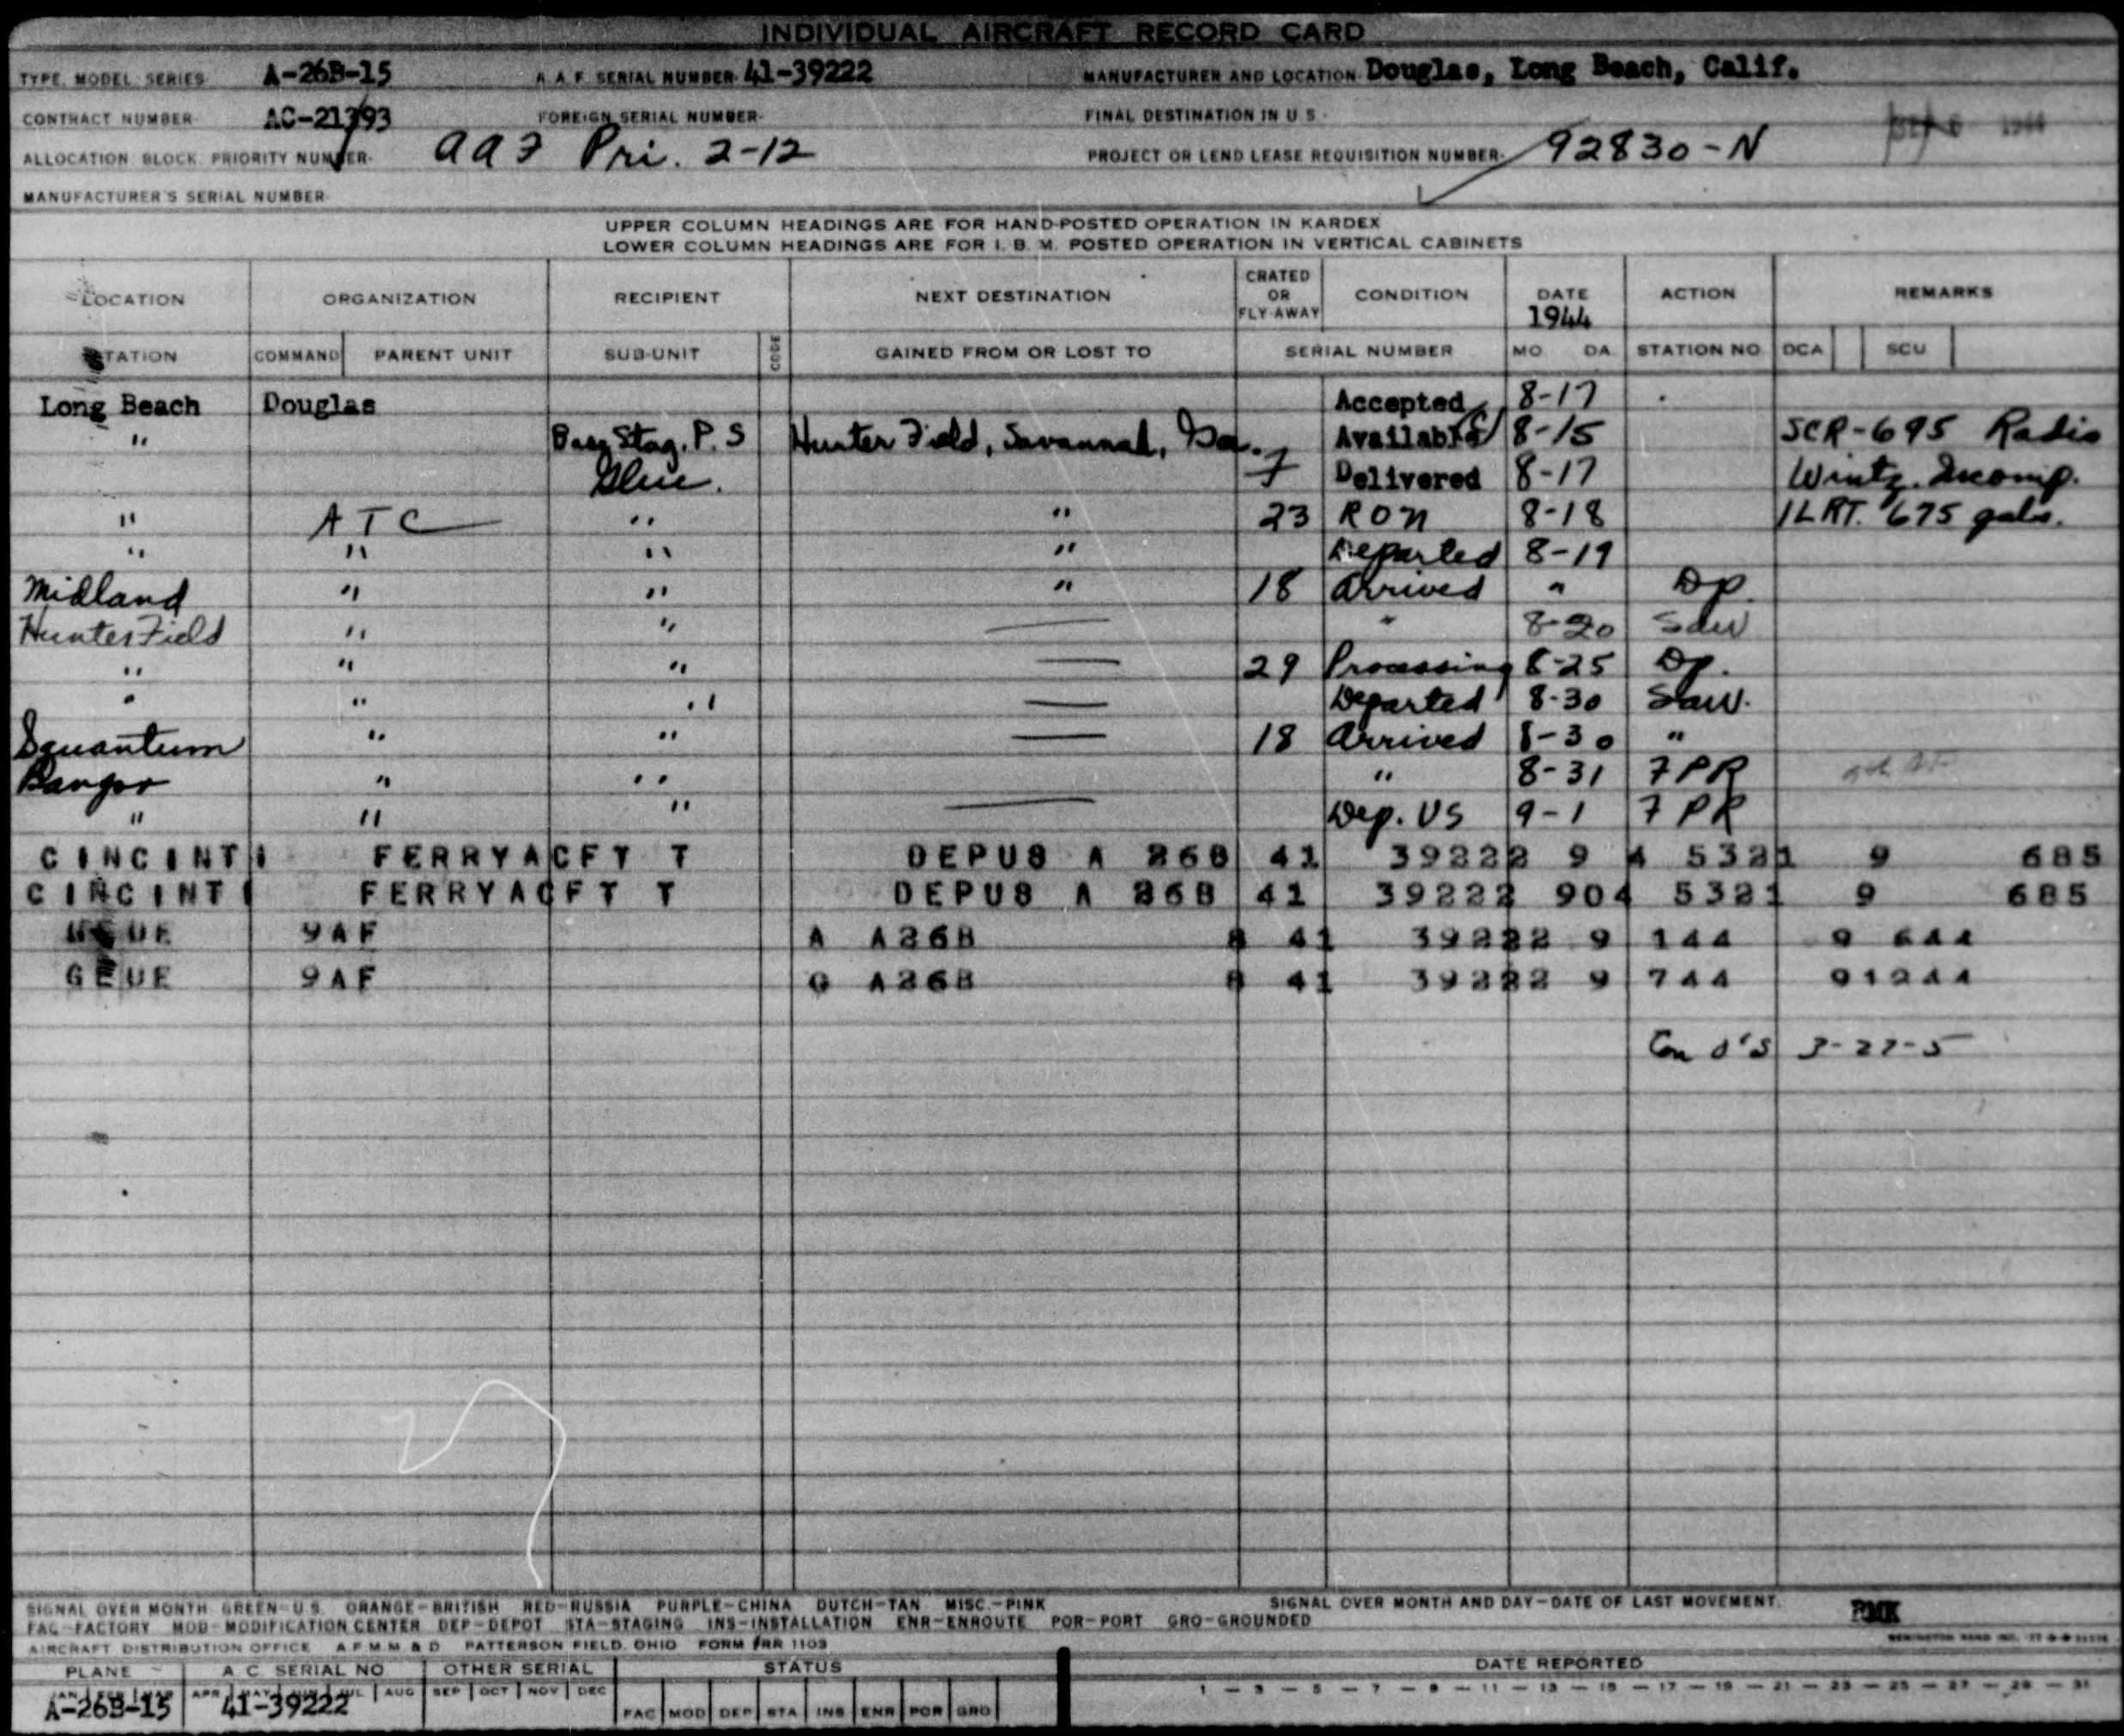 INDIVIDUAL AIRCRAFT RECORD CARD
TYPE, MODEL, SERIES A-26B-15 A.A.F. SERIAL NUMBER- 41-39222 MANUFACTURER AND LOCATION- Douglas, Long Beach, Calif.
CONTRACT NUMBER- AC-21393 FOREIGN SERIAL NUMBER- FINAL DESTINATION IN U S - 1944
ALLOCATION, BLOCK, PRIORITY NUMBER- aa7 Pri. 2-12 PROJECT OR LEND LEASE REQUISITION NUMBER- 92830-N
MANUFACTURER'S SERIAL NUMBER-
UPPER COLUMN HEADINGS ARE FOR HAND-POSTED OPERATION IN KARDEX
LOWER COLUMN HEADINGS ARE FOR I. B. M. POSTED OPERATION IN VERTICAL CABINETS
LOCATION ORGANIZATION RECIPIENT NEXT DESTINATION CRATED OR FLY-AWAY CONDITION DATE 1944 ACTION REMARKS
STATION COMMAND PARENT UNIT SUB-UNIT CODE GAINED FROM OR LOST TO SERIAL NUMBER MO DA STATION NO DCA SCU
Long Beach Douglas Accepted 8-17
" Stag. P. S Hunter Field, Savannah, Ga. Available 8-15 SCR-695 Radio
7 Delivered 8-17 Wintz. Incomp.
" ATC " " 23 RON 8-18 1LRT. 675 gals.
" " " " Departed 8-19
Midland " " " 18 Arrived " Dp.
Hunter Field " " — " 8-20 Saw
" " " — 29 Processing 8-25 Dp.
" " " — Departed 8-30 Saw.
Squantum " " — 18 Arrived 8-30 "
Bangor " " " 8-31 7PR
" " " — Dep. US 9-1 7 PR
CINCINTI FERRYACFT T DEPUS A 26B 41 39222 9 4 5321 9 685
CINCINTI FERRYACFT T DEPUS A 26B 41 39222 904 5321 9 685
9AF A A26B B 41 39222 9 144 9 644
GEUE 9AF G A26B B 41 39222 9 744 91244
Con 3-27-5
SIGNAL OVER MONTH GREEN-U S. ORANGE-BRITISH RED-RUSSIA PURPLE-CHINA DUTCH-TAN MISC.-PINK SIGNAL OVER MONTH AND DAY-DATE OF LAST MOVEMENT.
FAC-FACTORY MOD-MODIFICATION CENTER DEP-DEPOT STA-STAGING INS-INSTALLATION ENR-ENROUTE POR-PORT GRO-GROUNDED PMK
AIRCRAFT DISTRIBUTION OFFICE A F M M & D PATTERSON FIELD, OHIO FORM RR 1103
PLANE A C SERIAL NO OTHER SERIAL STATUS DATE REPORTED
JAN FEB MAR APR MAY JUN JUL AUG SEP OCT NOV DEC 1 - 3 - 5 - 7 - 9 - 11 - 13 - 15 - 17 - 19 - 21 - 23 - 25 - 27 - 29 - 31
A-26B-15 41-39222 FAC MOD DEP STA INS ENR POR GRO